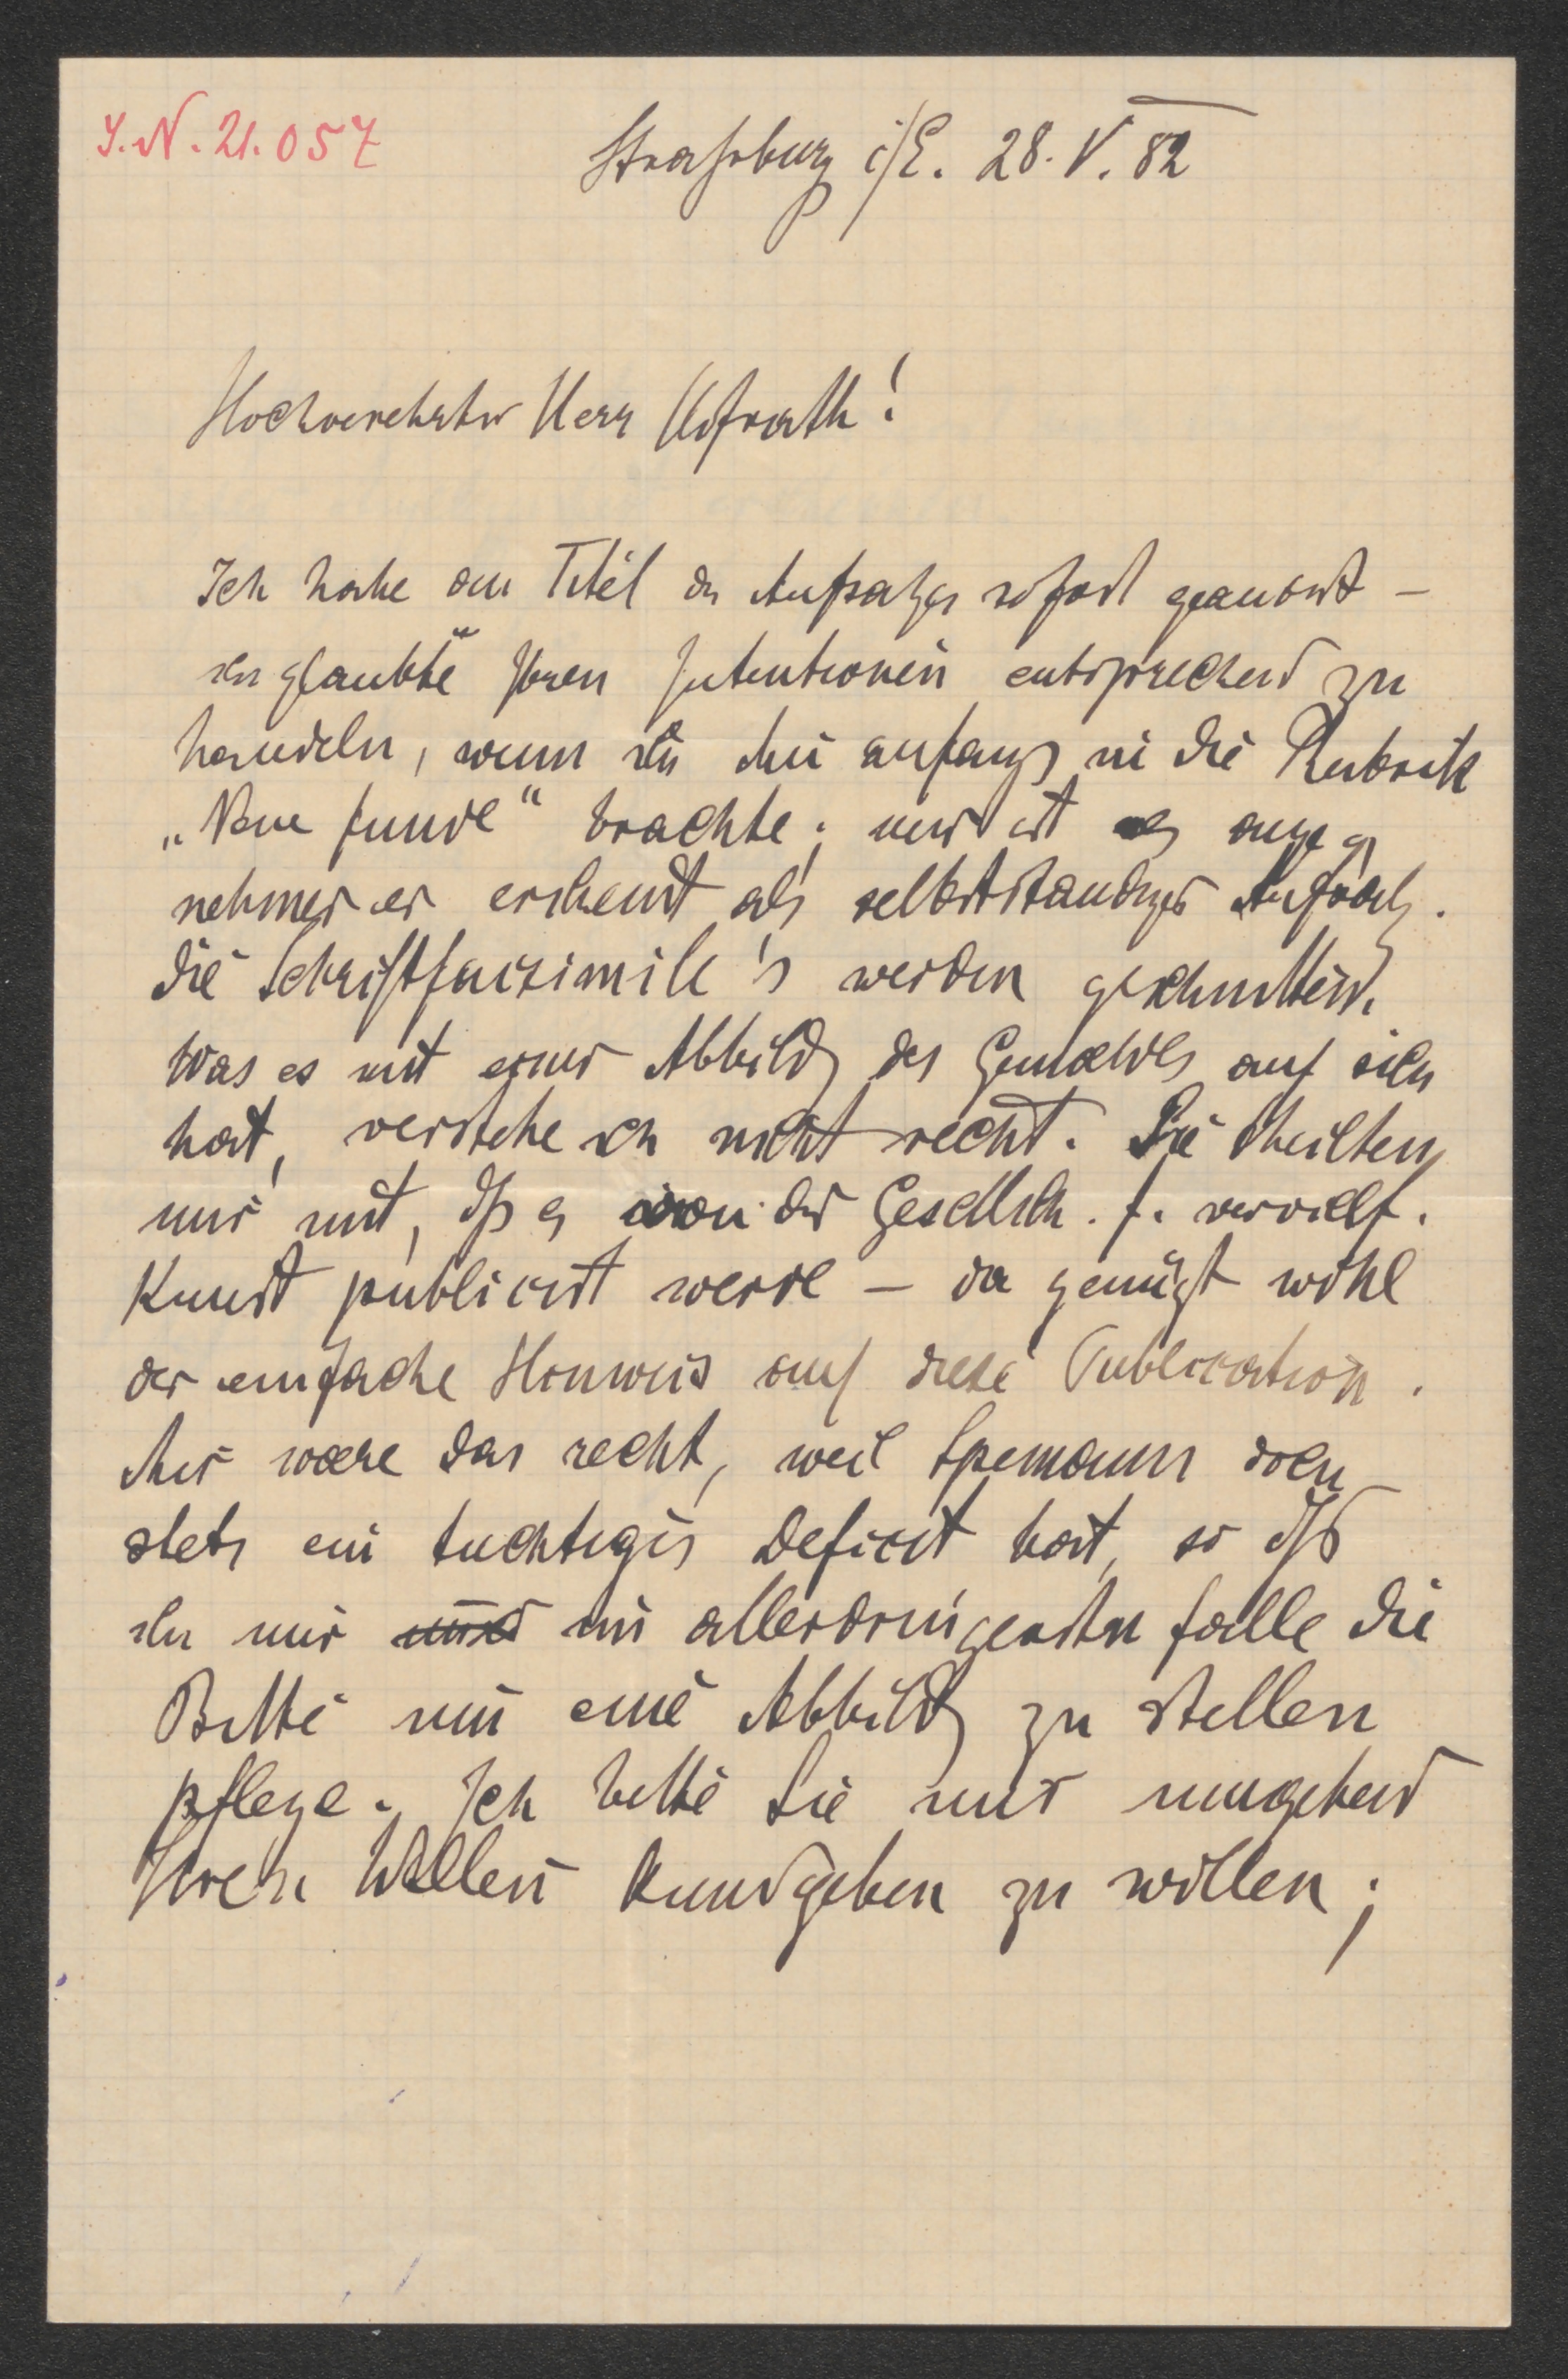 I.N. 21.057
Strassburg i/E. 28. V. 82
Hochverehrter Herr Hofrath!
Ich habe den Titel des Aufsatzes sofort geändert –
ich glaubte Ihren Intentionen entsprechend zu
handeln, wenn ich ihn anfangs in die Rubrik
„Neue Funde" brachte; mir ist es ange
nehmer er erscheint als selbstständiger Aufsatz.
Die Schriftfacsimile's werden geschnitten.
Was es mit einer Abbildg des Gemäldes auf sich
hat, verstehe ich nicht recht. Sie theilten
mir mit, dß es von der Gesellsch. f. vervielf.
Kunst publicirt werde – da genügt wohl
der einfache Hinweis auf diese Publication.
Mir wäre das recht, weil Spemann doch
stets ein tüchtiges Deficit hat, so dß
ich nur im allerdringendsten Falle die
Bitte um eine Abbildg zu stellen
pflege. Ich bitte Sie mir umgehend
Ihren Willen kundgeben zu wollen;